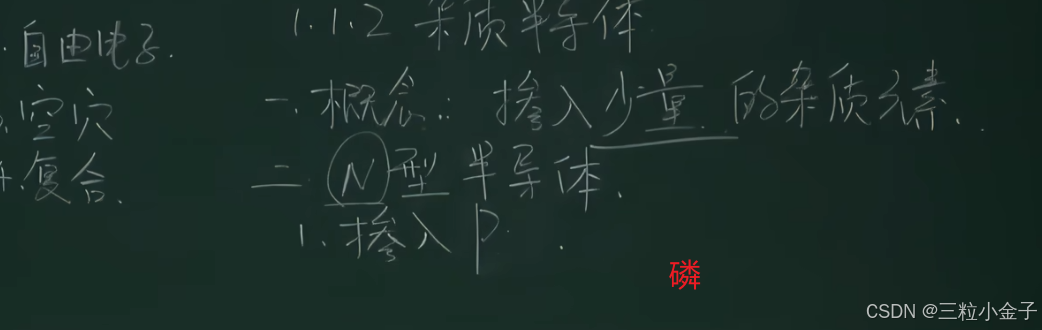 自由电子.
空穴
复合.
1.1.2 杂质半导体
一.概念: 掺入少量的杂质元素.
二 N型半导体.
1.掺入P.
磷
CSDN @三粒小金子